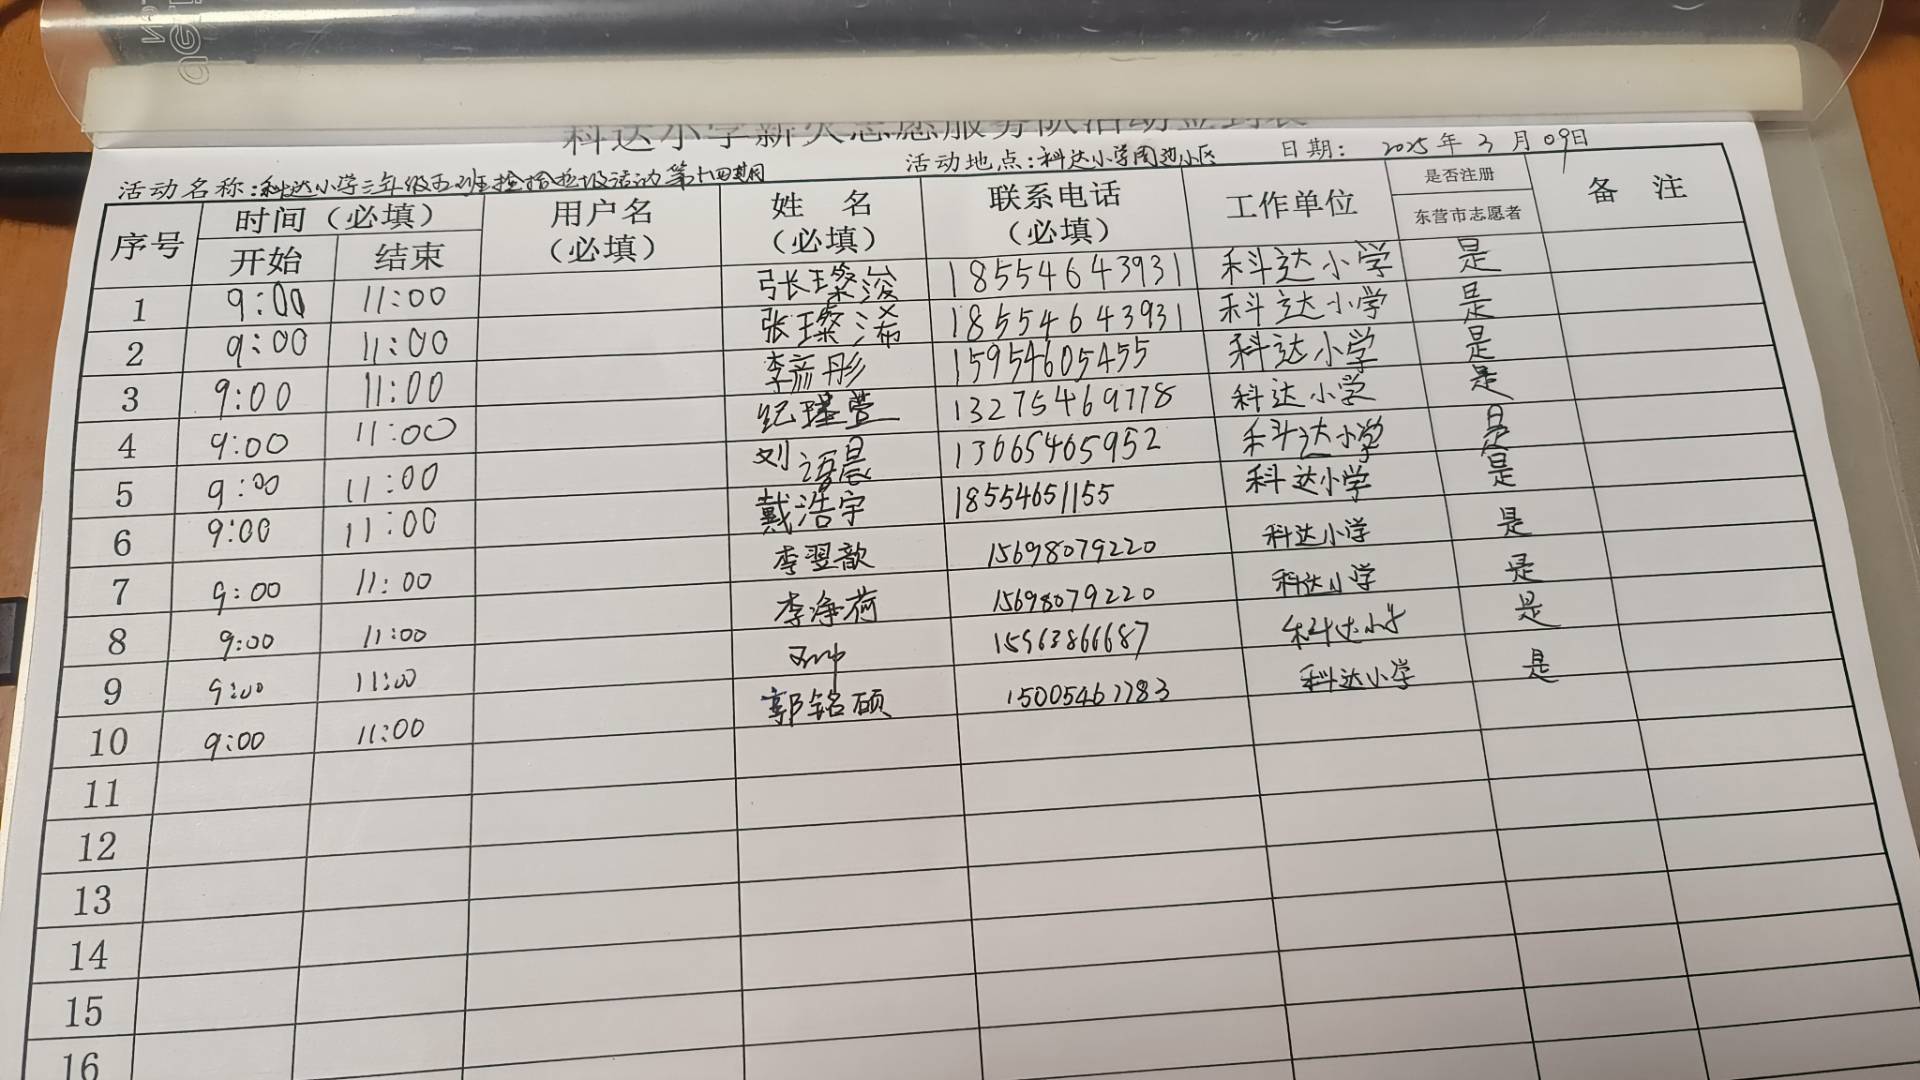 科达小学薪火志愿服务队活动签到表
活动名称:科达小学三年级五班捡拾垃圾活动第十四期 活动地点:科达小学周边小区 日期: 2025年3月09日
序号 时间(必填) 用户名(必填) 姓 名(必填) 联系电话(必填) 工作单位 是否注册东营市志愿者 备 注
开始 结束
1 9:00 11:00 张璨浚 18554643931 科达小学 是
2 9:00 11:00 张璨浠 18554643931 科达小学 是
3 9:00 11:00 李彦彤 15954605455 科达小学 是
4 9:00 11:00 纪瑾萱 13275469778 科达小学 是
5 9:00 11:00 刘语晨 13065465952 科达小学 是
6 9:00 11:00 戴浩宇 18554651155 科达小学 是
7 9:00 11:00 李翌歆 15698079220 科达小学 是
8 9:00 11:00 李净荷 15698079220 科达小学 是
9 9:00 11:00 15963866687 科达小学 是
10 9:00 11:00 郭铭硕 15005461783 科达小学 是
11
12
13
14
15
16